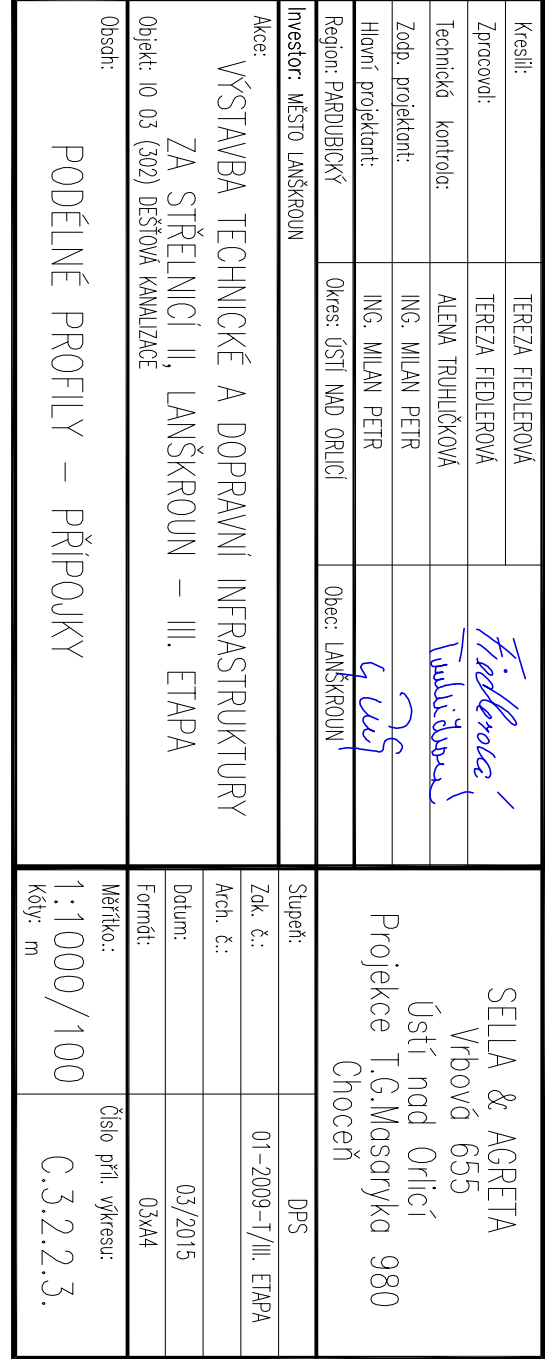 Kreslil: TEREZA FIEDLEROVÁ
Zpracoval: TEREZA FIEDLEROVÁ Fiedlerová
Technická kontrola: ALENA TRUHLIČKOVÁ
Zodp. projektant: ING. MILAN PETR
Hlavní projektant: ING. MILAN PETR
Region: PARDUBICKÝ Okres: ÚSTÍ NAD ORLICÍ Obec: LANŠKROUN
Investor: MĚSTO LANŠKROUN
Akce:
VÝSTAVBA TECHNICKÉ A DOPRAVNÍ INFRASTRUKTURY
ZA STŘELNICÍ II, LANŠKROUN – III. ETAPA
Objekt: IO 03 (302) DEŠŤOVÁ KANALIZACE
Obsah:
PODÉLNÉ PROFILY – PŘÍPOJKY
SELLA & AGRETA
Vrbová 655
Ústí nad Orlicí
Projekce T.G.Masaryka 980
Choceň
Stupeň: DPS
Zak. č.: 01-2009-T/III. ETAPA
Arch. č.:
Datum: 03/2015
Formát: 03xA4
Měřítko.: Číslo příl. výkresu:
1:1000/100 C.3.2.2.3.
Kóty: m